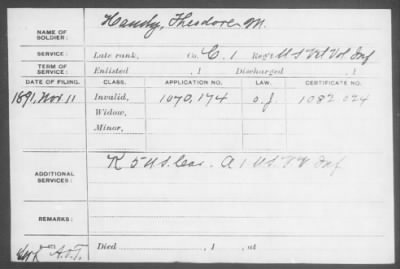 NAME OF SOLDIER: Handy, Theodore M.
SERVICE: Late rank, Co. C. 1 Reg't U S Vet Vol Inf
TERM OF SERVICE: Enlisted , 1 Discharged , 1
DATE OF FILING. CLASS. APPLICATION NO. LAW. CERTIFICATE NO.
1891, Nov 11 Invalid, 1070,174 1082 024
Widow,
Minor,
ADDITIONAL SERVICES: K 5 U.S. Cav. A 1 U.S. V V Inf
REMARKS:
Died , 1 , at